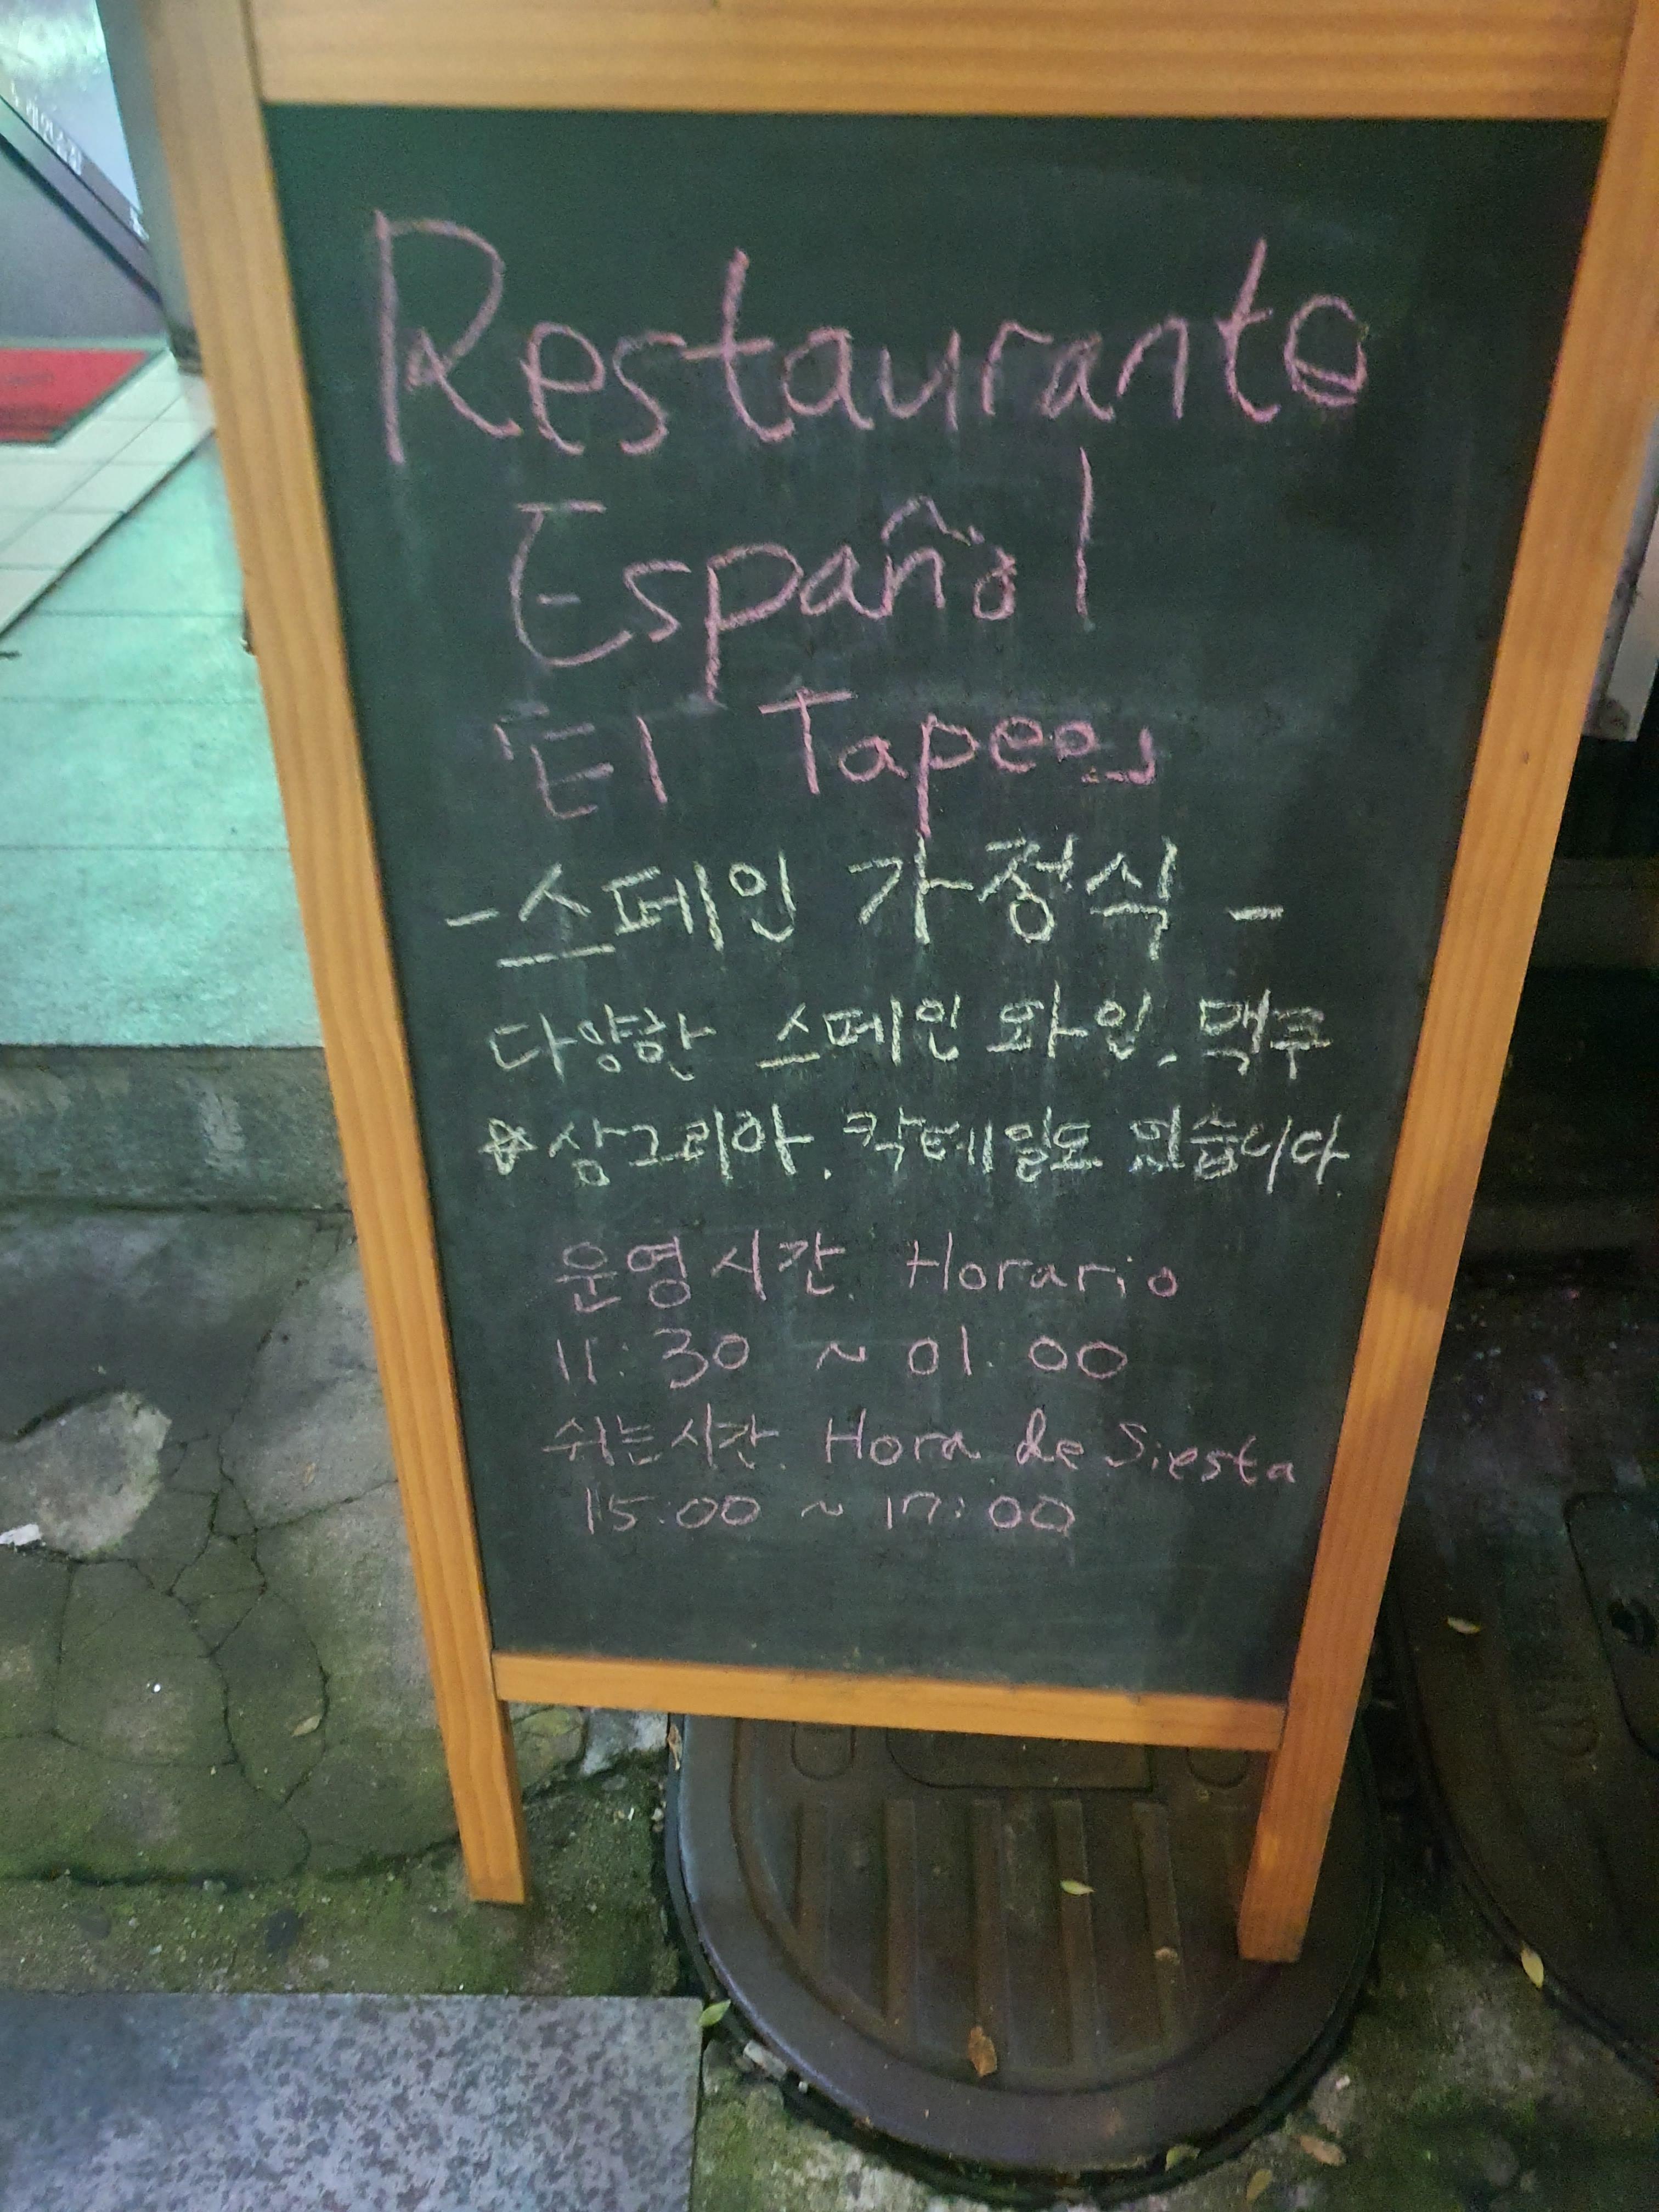 Restaurante
Español
El Tapeo
-스페인 가정식-
다양한 스페인 와인, 맥주
☆상그리아, 칵테일도 있습니다.
운영시간. Horario
11:30 ~ 01:00
쉬는시간. Hora de Siesta
15:00 ~ 17:00